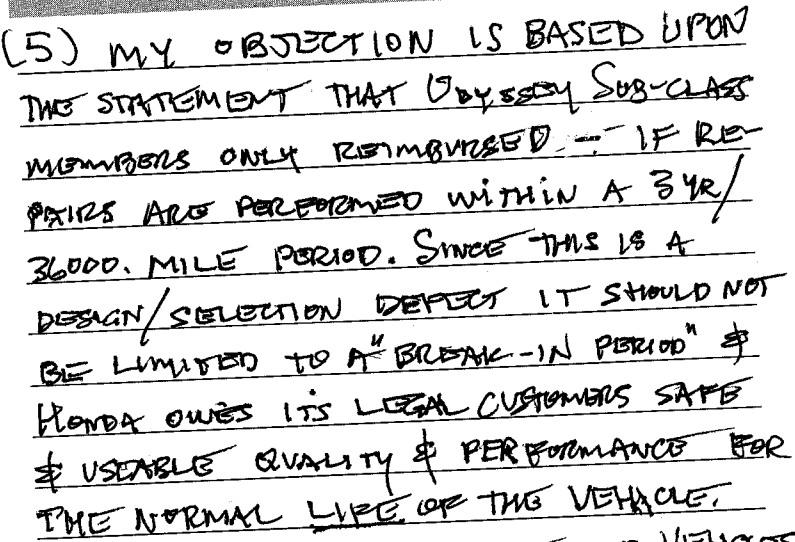 (5) MY OBJECTION IS BASED UPON
THE STATEMENT THAT ODYSSEY SUB-CLASS
MEMBERS ONLY REIMBURSED - IF RE-
PAIRS ARE PERFORMED WITHIN A 3 YR/
36000. MILE PERIOD. SINCE THIS IS A
DESIGN/SELECTION DEFECT IT SHOULD NOT
BE LIMITED TO A "BREAK-IN PERIOD" &
HONDA OWES ITS LEGAL CUSTOMERS SAFE
& USEABLE QUALITY & PERFORMANCE FOR
THE NORMAL LIFE OF THE VEHICLE.
VEHICLES